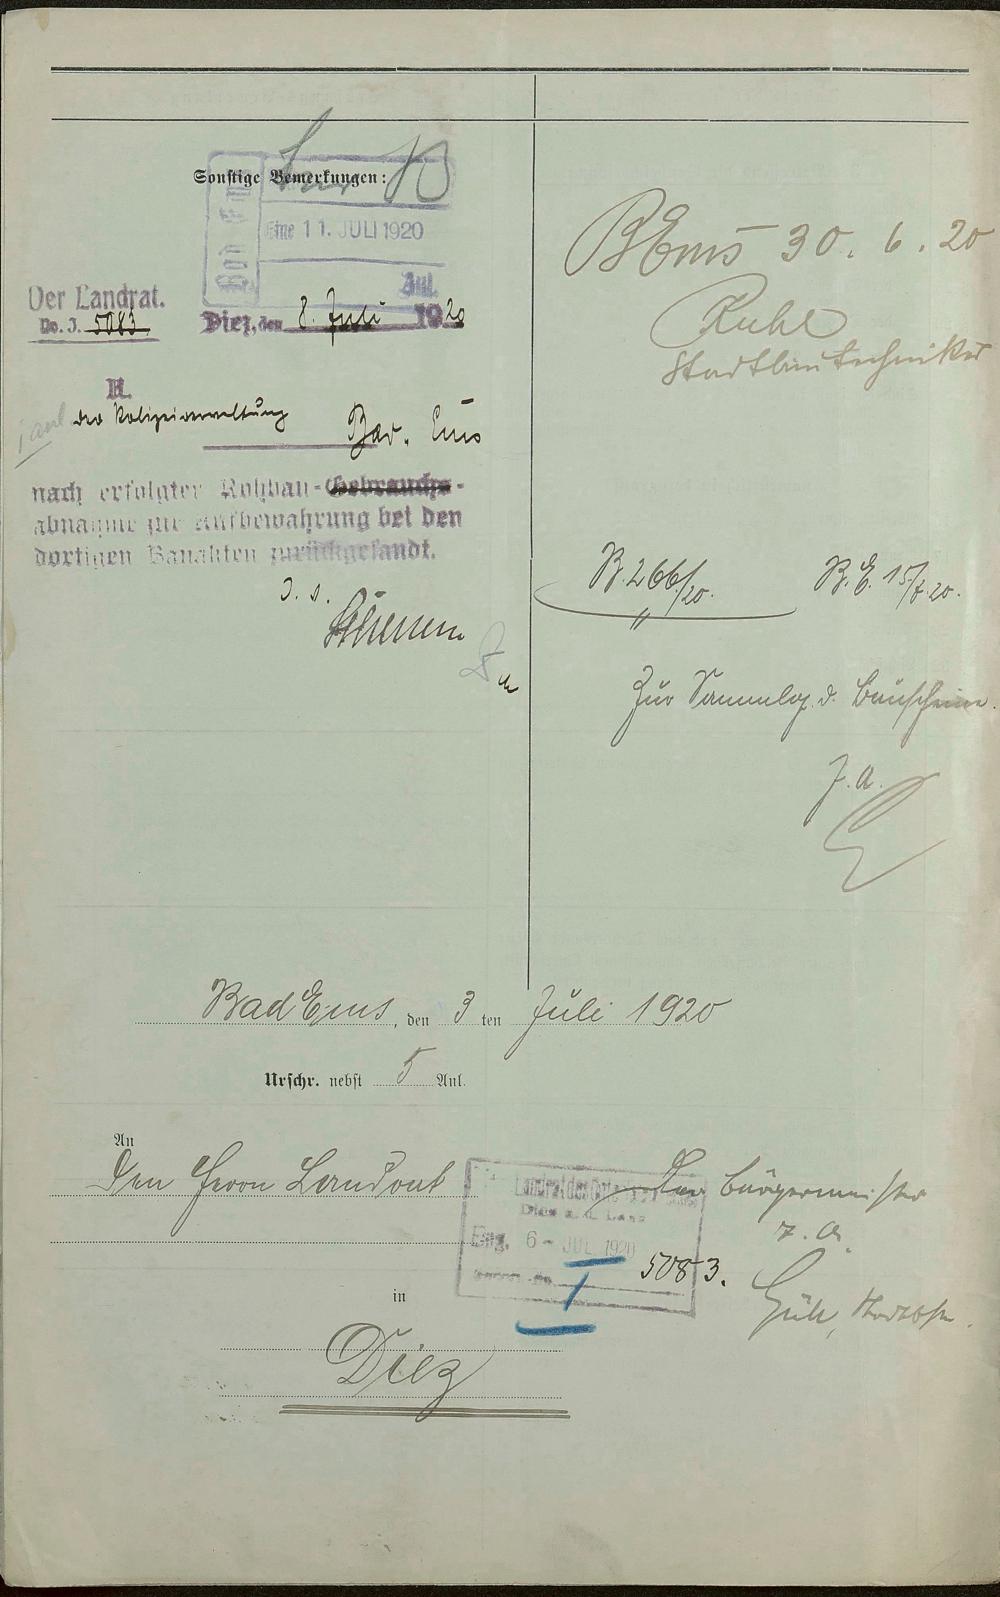 Sonstige Bemerkungen:
Bad Ems
Eing. 11. JULI 1920
Anl.
Der Landrat.
No. I. 5083
Diez, den 8. Juli 1920
II.
der Polizeiverwaltung
Bad Ems
nach erfolgter Rohbau-Gebrauchs-
abnahme zur Aufbewahrung bei den
dortigen Bauakten zurückgesandt.
BEms 30. 6. 20
Ruhl
Stadtbautechniker
B. 266/20.
B. E. 15/7.20.
Zur Sammlg. d. Bauscheine.
J. A.
Bad Ems, den 3 ten Juli 1920
Urschr. nebst 5 Anl.
An
Den Herrn Landrat
in
Diez
Landrat des
Diez a. d. Lahn
Eing. 6 - JUL. 1920
I 5083.
Der Bürgermeister